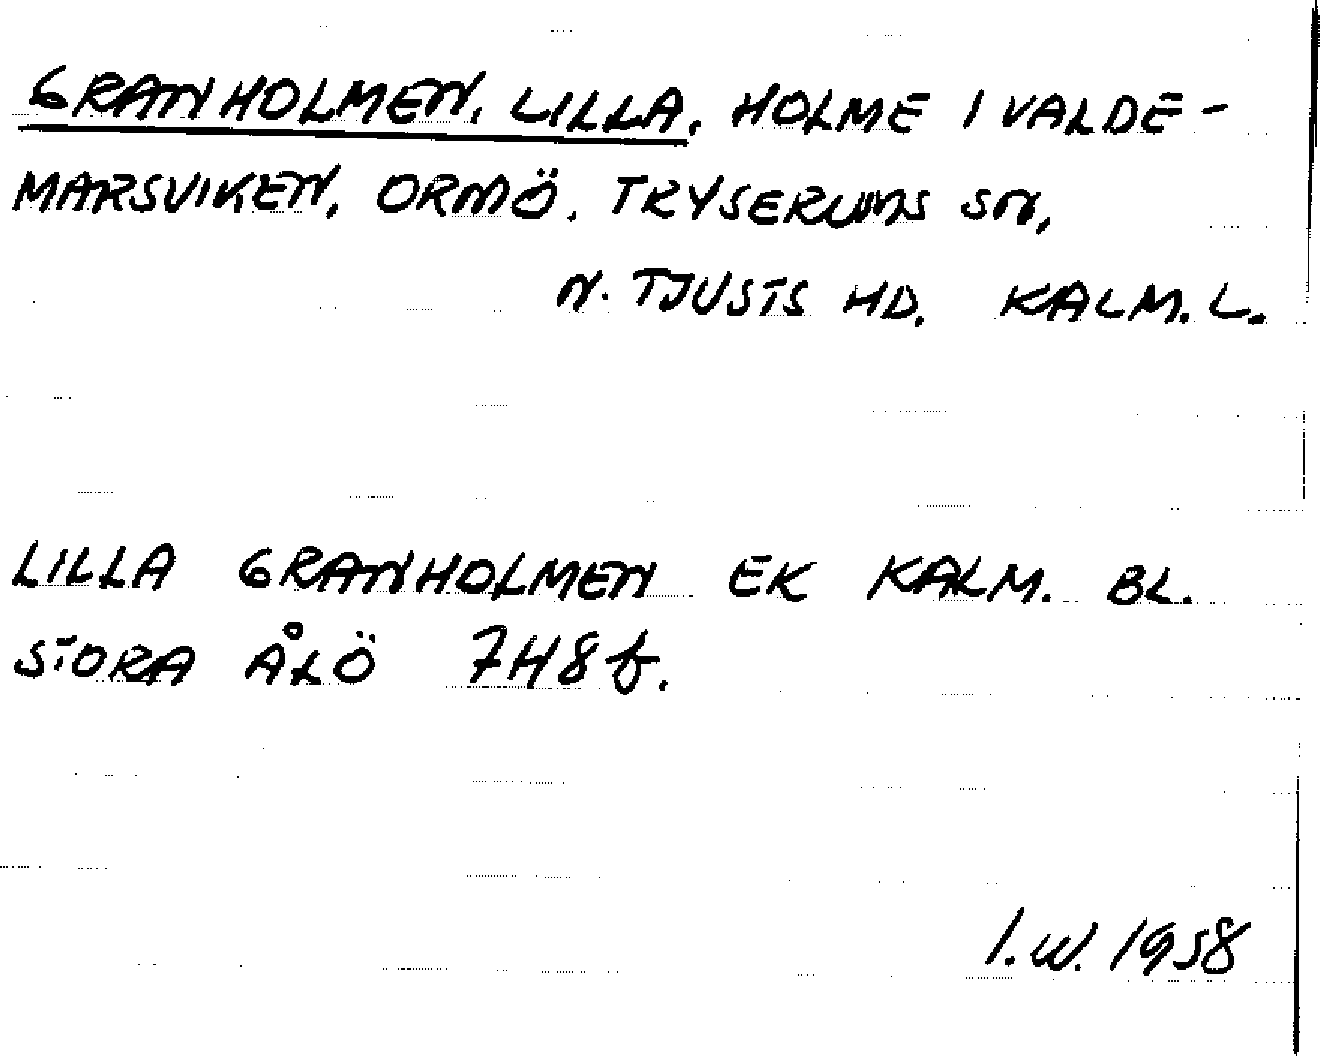 GRANHOLMEN, LILLA, HOLME I VALDE-
MARSVIKEN, ORMÖ, TRYSERUMS SN,
N. TJUSTS HD. KALM. L.
LILLA GRANHOLMEN EK KALM. BL.
STORA ÅLÖ 7H8f.
I.W. 1958